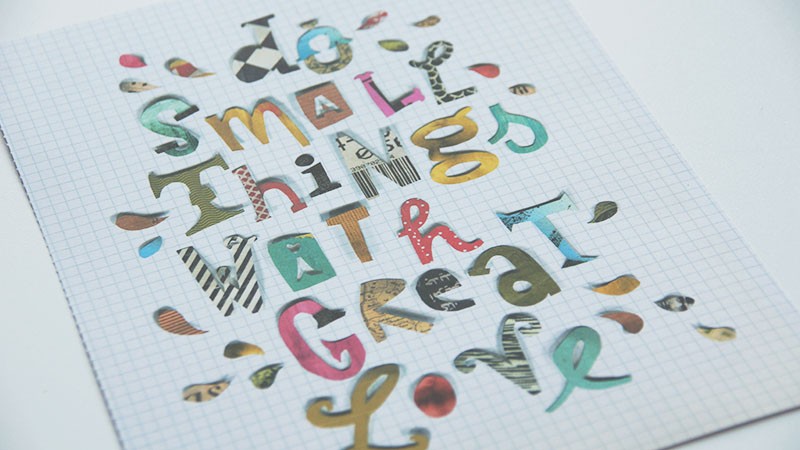 do
SmALL
ThiNgs
WiTh
GReaT
Love